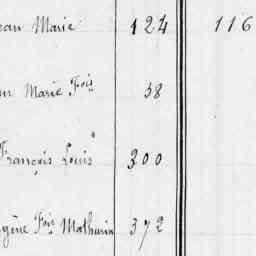 ean Marie 124 116
n Marie Fois 38
François Louis 300
gène Fois Mathurin 372